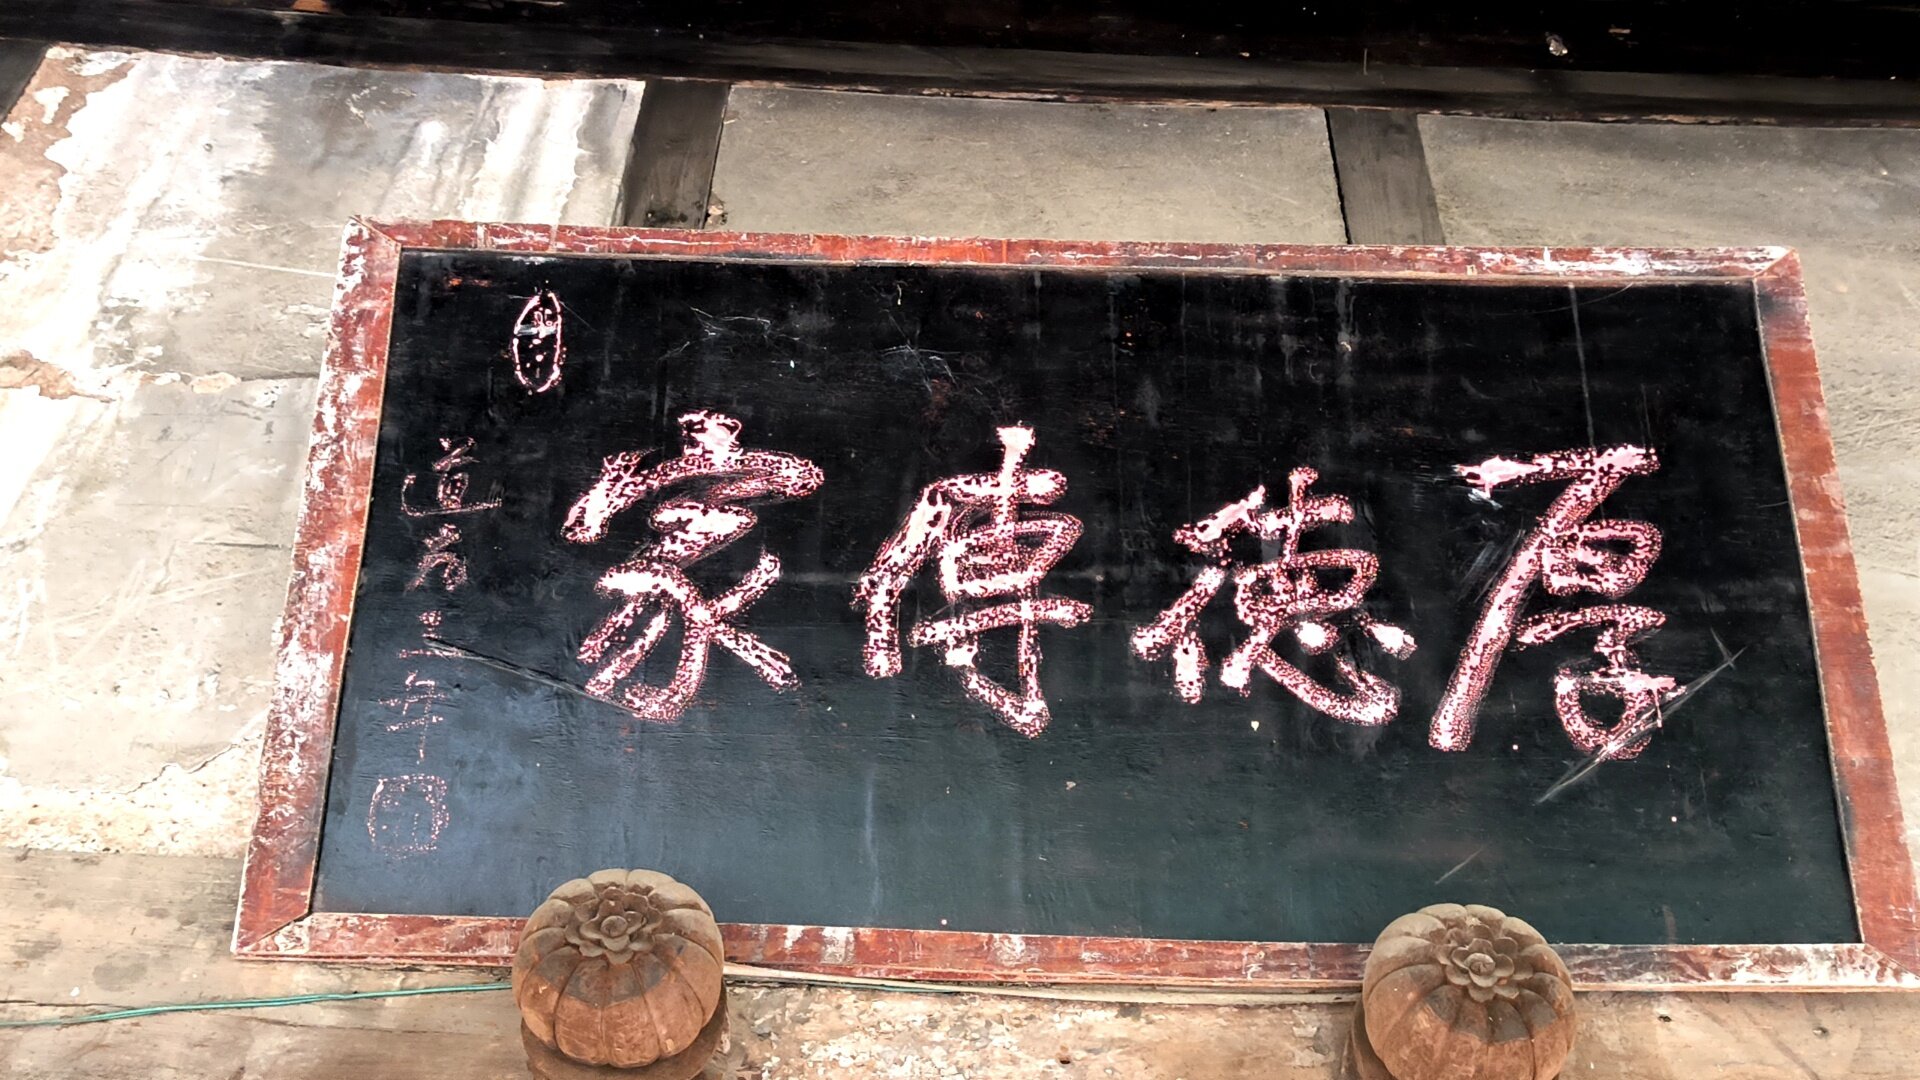 厚德傳家
道光三年